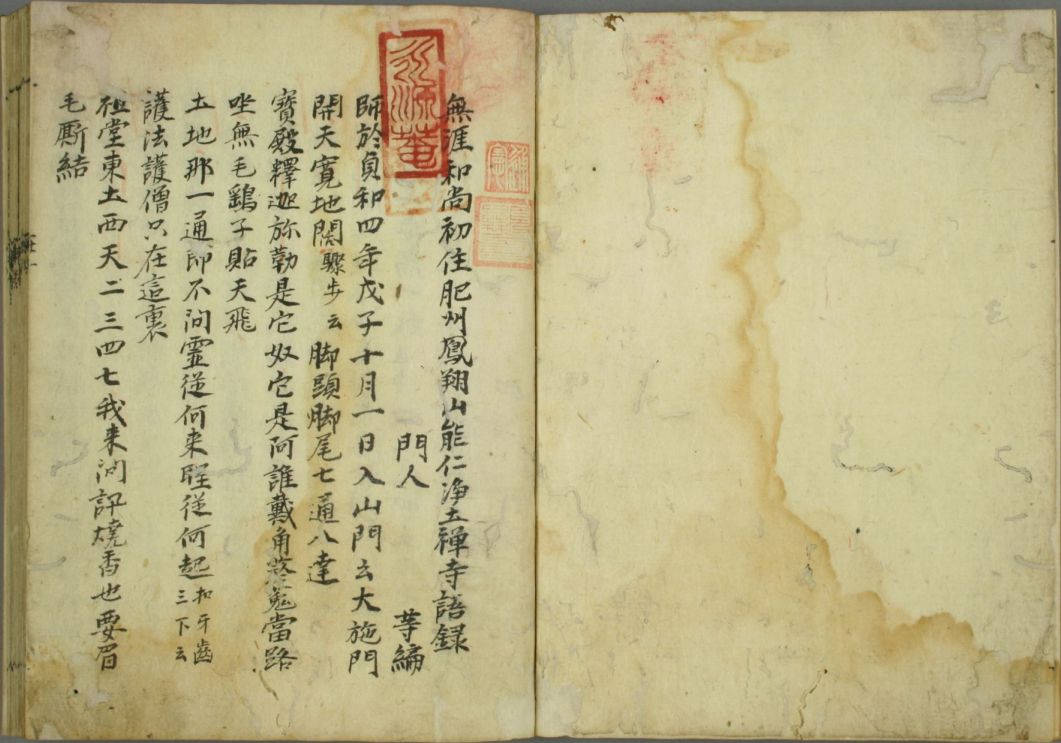 無涯和尚初住肥州鳳翔山能仁浄土禅寺語録
門人 等編
師於貞和四年戊子十月一日入山門云大施門
開天寛地闊驟歩云脚頭脚尾七通八達
寶殿釋迦弥勒是它奴它是阿誰戴角 當路
坐無毛鷄子貼天飛
土地那一通即不问霊従何来聖従何起扣牙齒三下云
護法護僧只在這裏
祖堂東土西天二三四七我来问訊焼香也要眉
毛厮結
永源菴